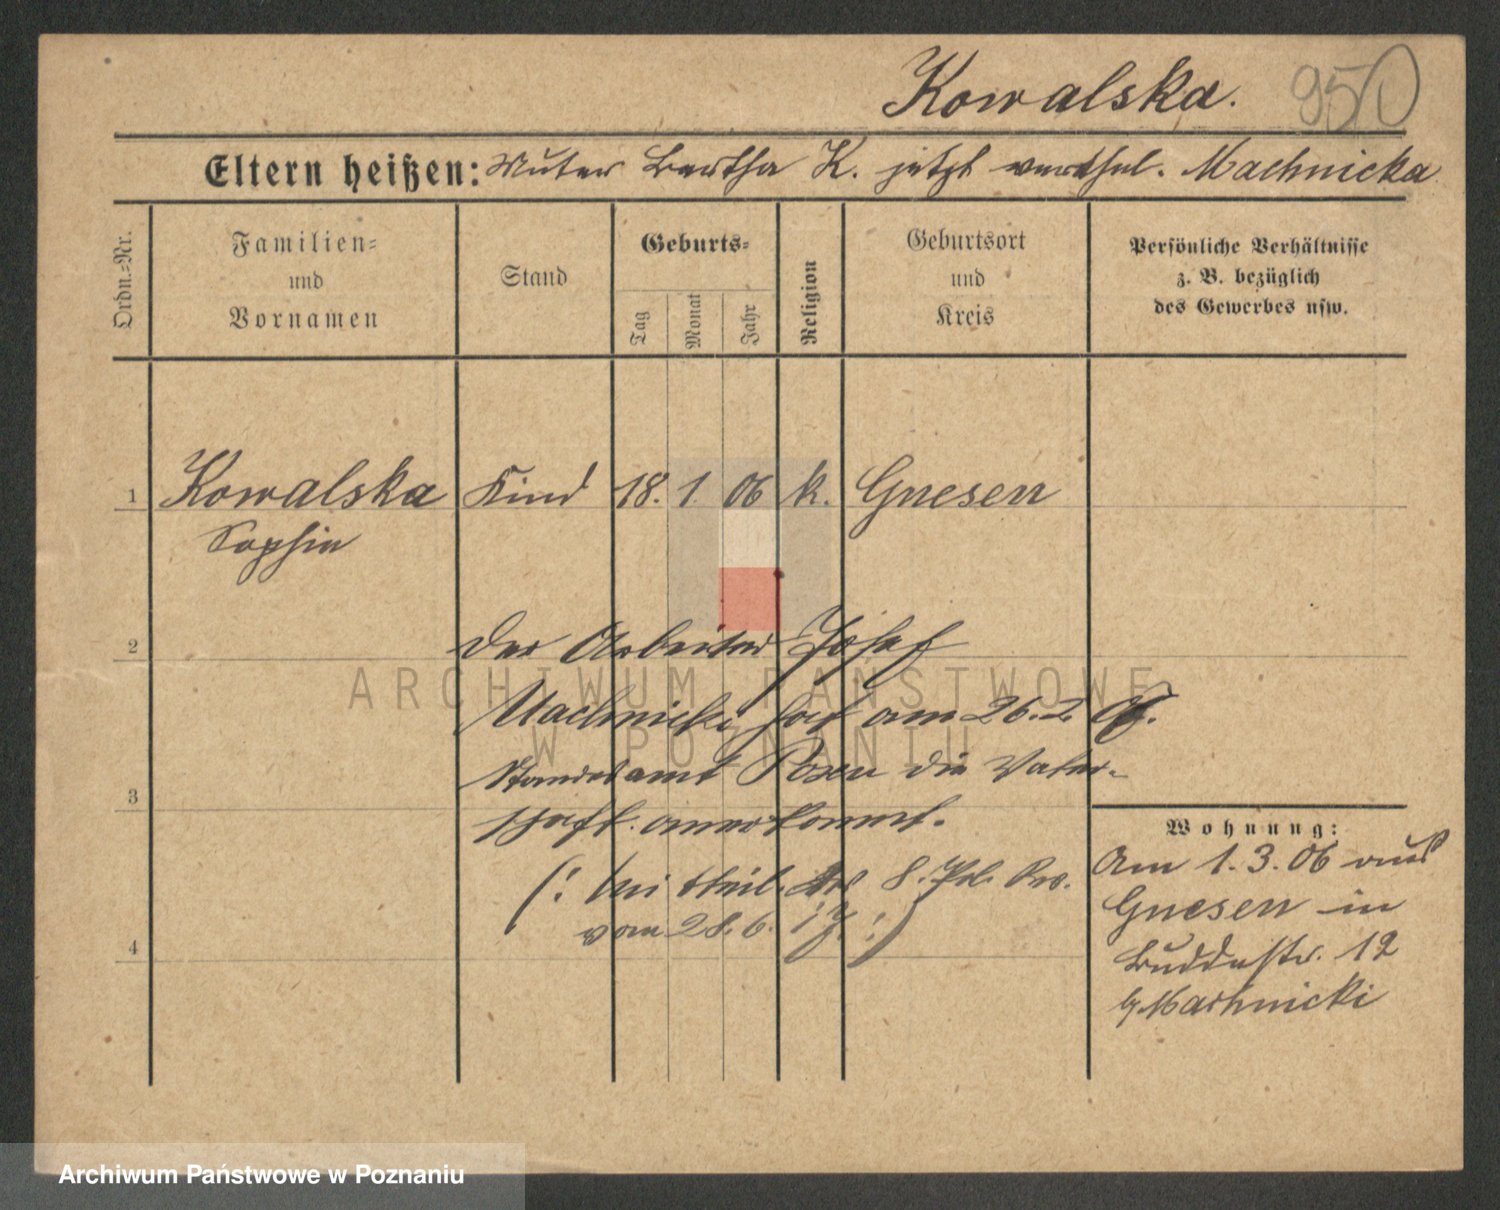 Kowalska.
950
Eltern heißen: Mutter Bertha K. jetzt verehel. Machnicka
Ordn.-Nr.
Familien-
und
Vornamen
Stand
Geburts-
Tag
Monat
Jahr
Religion
Geburtsort
und
Kreis
Persönliche Verhältnisse
z. B. bezüglich
des Gewerbes usw.
1 Kowalska Kind 18. 1. 06 k. Gnesen
Sophie
2
der Arbeiter Josef
Machnicki hat am 26.2. 06.
Standesamt Posen die Vater-
3
schaft anerkannt.
(: Mittheil. des 8. Pol. Rev.
vom 28. 6. :)
4
Wohnung:
Am 1. 3. 06 aus
Gnesen in
Buddestr. 12
b/Machnicki
ARCHIWUM PAŃSTWOWE
W POZNANIU
Archiwum Państwowe w Poznaniu